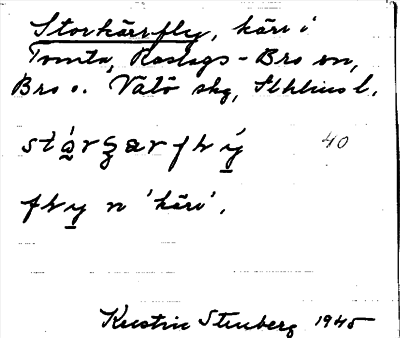 Storkärrfly, kärr i
Tomta, Roslags-Bro sn,
Bro o. Vätö skg, Sthlms l.
stǻrʒarflý 40
fly n 'kärr'.
Kerstin Stenberg 1945